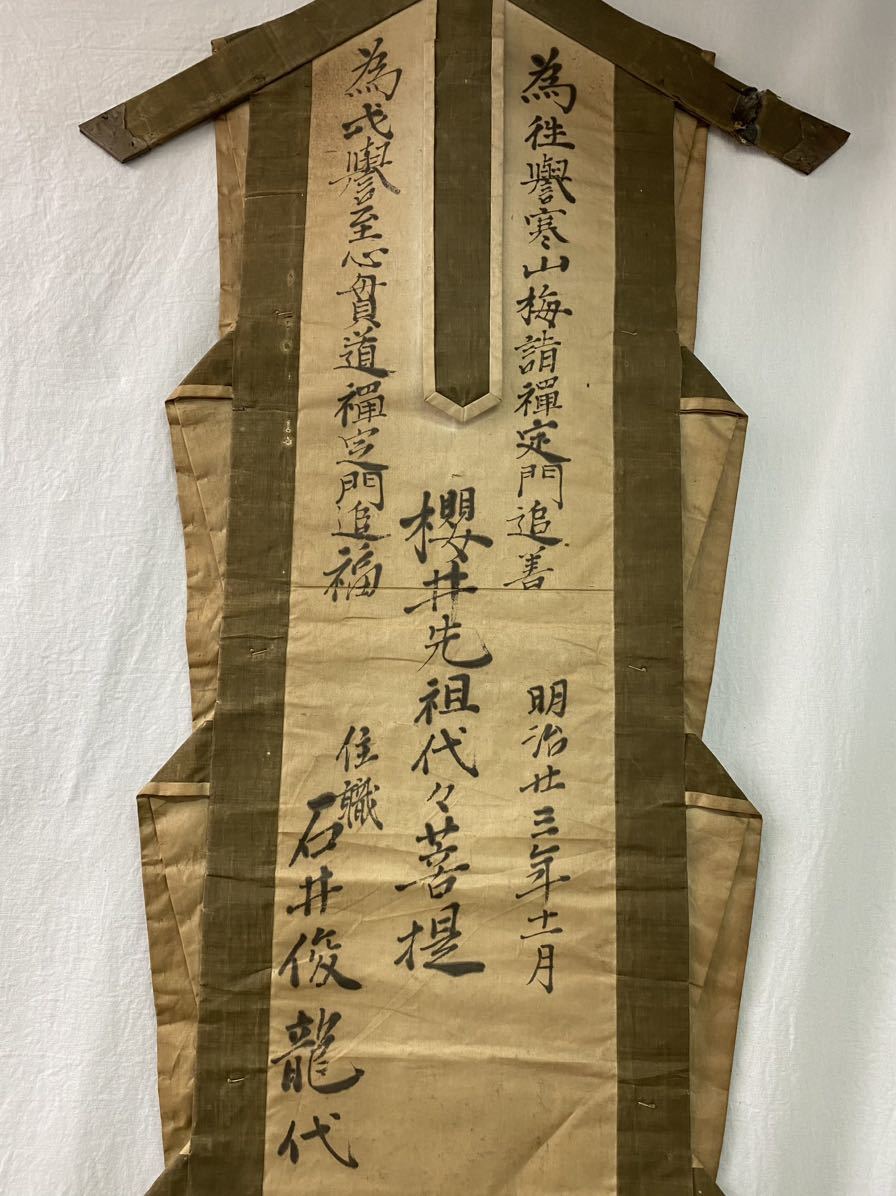 為徃譽寒山梅請禪定門追善
明治廿三年十一月
櫻井先祖代々菩提
為弌譽至心貫道禪定門追福
住職
石井俊龍代